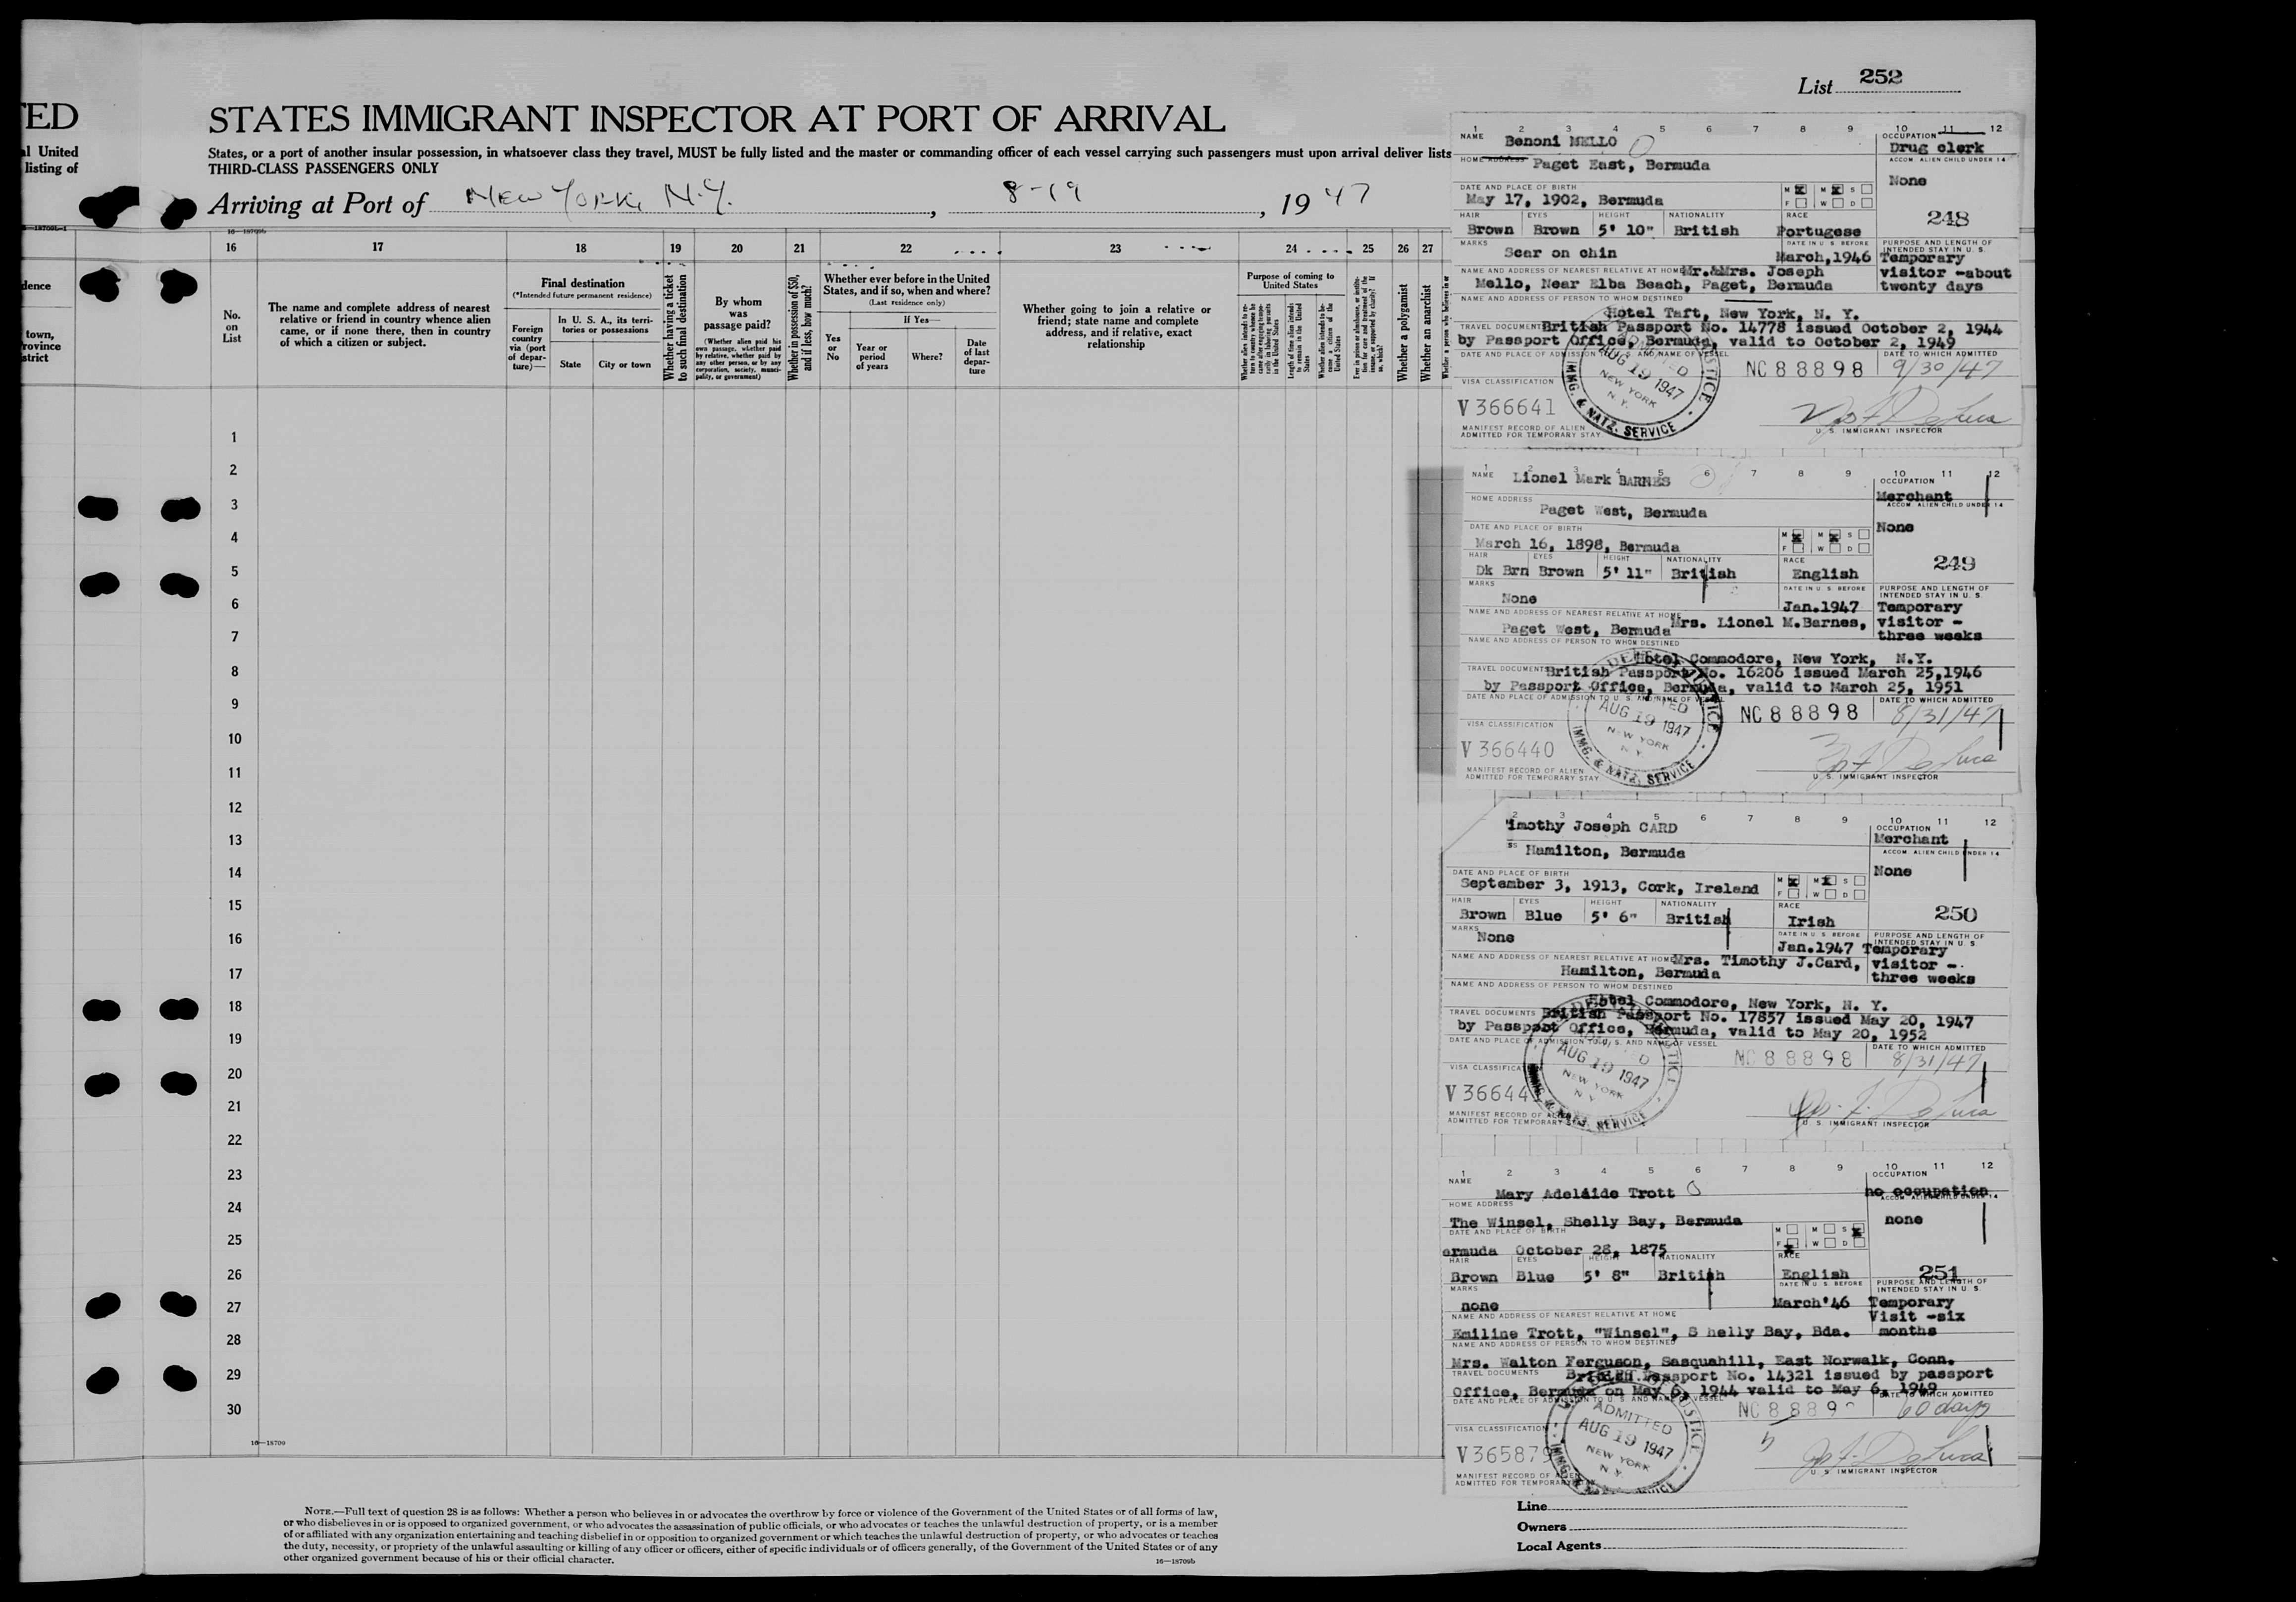 List 252
TED
STATES IMMIGRANT INSPECTOR AT PORT OF ARRIVAL
al United
listing of
States, or a port of another insular possession, in whatsoever class they travel, MUST be fully listed and the master or commanding officer of each vessel carrying such passengers must upon arrival deliver lists
THIRD-CLASS PASSENGERS ONLY
Arriving at Port of New York, N.Y., 8-19, 1947
16—18709b
16 17 18 19 20 21 22 23 24 25 26 27
dence
town,
rovince
strict
No. on List
The name and complete address of nearest relative or friend in country whence alien came, or if none there, then in country of which a citizen or subject.
Final destination
(*Intended future permanent residence)
Foreign country via (port of departure)—
In U. S. A., its territories or possessions
State
City or town
Whether having a ticket to such final destination
By whom was passage paid?
(Whether alien paid his own passage, whether paid by relative, whether paid by any other person, or by any corporation, society, municipality, or government)
Whether in possession of $50, and if less, how much?
Whether ever before in the United States, and if so, when and where?
(Last residence only)
Yes or No
If Yes—
Year or period of years
Where?
Date of last departure
Whether going to join a relative or friend; state name and complete address, and if relative, exact relationship
Purpose of coming to United States
Whether a polygamist
Whether an anarchist
1
2
3
4
5
6
7
8
9
10
11
12
13
14
15
16
17
18
19
20
21
22
23
24
25
26
27
28
29
30
16—18709
NOTE.—Full text of question 28 is as follows: Whether a person who believes in or advocates the overthrow by force or violence of the Government of the United States or of all forms of law,
or who disbelieves in or is opposed to organized government, or who advocates the assassination of public officials, or who advocates or teaches the unlawful destruction of property, or is a member
of or affiliated with any organization entertaining and teaching disbelief in or opposition to organized government or which teaches the unlawful destruction of property, or who advocates or teaches
the duty, necessity, or propriety of the unlawful assaulting or killing of any officer or officers, either of specific individuals or of officers generally, of the Government of the United States or of any
other organized government because of his or their official character.
16—18709b
1 2 3 4 5 6 7 8 9 10 11 12
NAME Benoni MELLO
OCCUPATION Drug clerk
HOME ADDRESS Paget East, Bermuda
ACCOM. ALIEN CHILD UNDER 14 None
DATE AND PLACE OF BIRTH
May 17, 1902, Bermuda
M X M X S
F W D
248
HAIR EYES HEIGHT NATIONALITY RACE
Brown Brown 5' 10" British Portugese
MARKS Scar on chin
DATE IN U. S. BEFORE March, 1946
PURPOSE AND LENGTH OF INTENDED STAY IN U. S.
Temporary visitor -about twenty days
NAME AND ADDRESS OF NEAREST RELATIVE AT HOME Mr.&Mrs. Joseph
Mello, Near Elba Beach, Paget, Bermuda
NAME AND ADDRESS OF PERSON TO WHOM DESTINED
Hotel Taft, New York, N. Y.
TRAVEL DOCUMENTS British Passport No. 14778 issued October 2, 1944
by Passport Office, Bermuda, valid to October 2, 1949
DATE AND PLACE OF ADMISSION TO U. S. AND NAME OF VESSEL
NC 88898
DATE TO WHICH ADMITTED
9/30/47
AUG 19 1947
NEW YORK
N. Y.
IMMG. & NATZ. SERVICE
VISA CLASSIFICATION
V 366641
MANIFEST RECORD OF ALIEN
ADMITTED FOR TEMPORARY STAY
U. S. IMMIGRANT INSPECTOR
1 2 3 4 5 6 7 8 9 10 11 12
NAME Lionel Mark BARNES
OCCUPATION Merchant
HOME ADDRESS
Paget West, Bermuda
ACCOM. ALIEN CHILD UNDER 14
None
DATE AND PLACE OF BIRTH
March 16, 1898, Bermuda
M X M X S
F W D
249
HAIR EYES HEIGHT NATIONALITY RACE
Dk Brn Brown 5' 11" British English
MARKS None
DATE IN U. S. BEFORE Jan.1947
PURPOSE AND LENGTH OF INTENDED STAY IN U. S.
Temporary visitor - three weeks
NAME AND ADDRESS OF NEAREST RELATIVE AT HOME Mrs. Lionel M.Barnes,
Paget West, Bermuda
NAME AND ADDRESS OF PERSON TO WHOM DESTINED
Hotel Commodore, New York, N.Y.
TRAVEL DOCUMENTS British Passport No. 16206 issued March 25,1946
by Passport Office, Bermuda, valid to March 25, 1951
DATE AND PLACE OF ADMISSION TO U. S. AND NAME OF VESSEL
NC 88898
DATE TO WHICH ADMITTED
8/31/47
AUG 19 1947
NEW YORK
N. Y.
IMMG. & NATZ. SERVICE
VISA CLASSIFICATION
V 366440
MANIFEST RECORD OF ALIEN
ADMITTED FOR TEMPORARY STAY
U. S. IMMIGRANT INSPECTOR
2 3 4 5 6 7 8 9 10 11 12
imothy Joseph CARD
OCCUPATION Merchant
ss Hamilton, Bermuda
ACCOM. ALIEN CHILD UNDER 14
None
DATE AND PLACE OF BIRTH
September 3, 1913, Cork, Ireland
M X M X S
F W D
250
HAIR EYES HEIGHT NATIONALITY RACE
Brown Blue 5' 6" British Irish
MARKS None
DATE IN U. S. BEFORE Jan.1947
PURPOSE AND LENGTH OF INTENDED STAY IN U. S.
Temporary visitor - three weeks
NAME AND ADDRESS OF NEAREST RELATIVE AT HOME Mrs. Timothy J.Card,
Hamilton, Bermuda
NAME AND ADDRESS OF PERSON TO WHOM DESTINED
Hotel Commodore, New York, N. Y.
TRAVEL DOCUMENTS British Passport No. 17857 issued May 20, 1947
by Passport Office, Bermuda, valid to May 20, 1952
DATE AND PLACE OF ADMISSION TO U. S. AND NAME OF VESSEL
NC 88898
DATE TO WHICH ADMITTED
8/31/47
AUG 19 1947
NEW YORK
N. Y.
VISA CLASSIFICA
V 36644
MANIFEST RECORD OF ALIEN
ADMITTED FOR TEMPORARY
U. S. IMMIGRANT INSPECTOR
1 2 3 4 5 6 7 8 9 10 11 12
NAME Mary Adelaide Trott
OCCUPATION no occupation
HOME ADDRESS
The Winsel, Shelly Bay, Bermuda
ACCOM. ALIEN CHILD UNDER 14
none
DATE AND PLACE OF BIRTH
ermuda October 28, 1875
M M S X
F X W D
251
HAIR EYES HEIGHT NATIONALITY RACE
Brown Blue 5' 8" British English
MARKS none
DATE IN U. S. BEFORE March'46
PURPOSE AND LENGTH OF INTENDED STAY IN U. S.
Temporary Visit -six months
NAME AND ADDRESS OF NEAREST RELATIVE AT HOME
Emiline Trott, "Winsel", S helly Bay, Bda.
NAME AND ADDRESS OF PERSON TO WHOM DESTINED
Mrs. Walton Ferguson, Sasquahill, East Norwalk, Conn.
TRAVEL DOCUMENTS British Passport No. 14321 issued by passport
Office, Bermuda on May 6, 1944 valid to May 6, 1949
DATE AND PLACE OF ADMISSION TO U. S. AND NAME OF VESSEL
NC 8889
DATE TO WHICH ADMITTED
60 days
ADMITTED
AUG 19 1947
NEW YORK
N. Y.
VISA CLASSIFICATION
V 365879
MANIFEST RECORD OF ALIEN
ADMITTED FOR TEMPORARY
U. S. IMMIGRANT INSPECTOR
Line
Owners
Local Agents